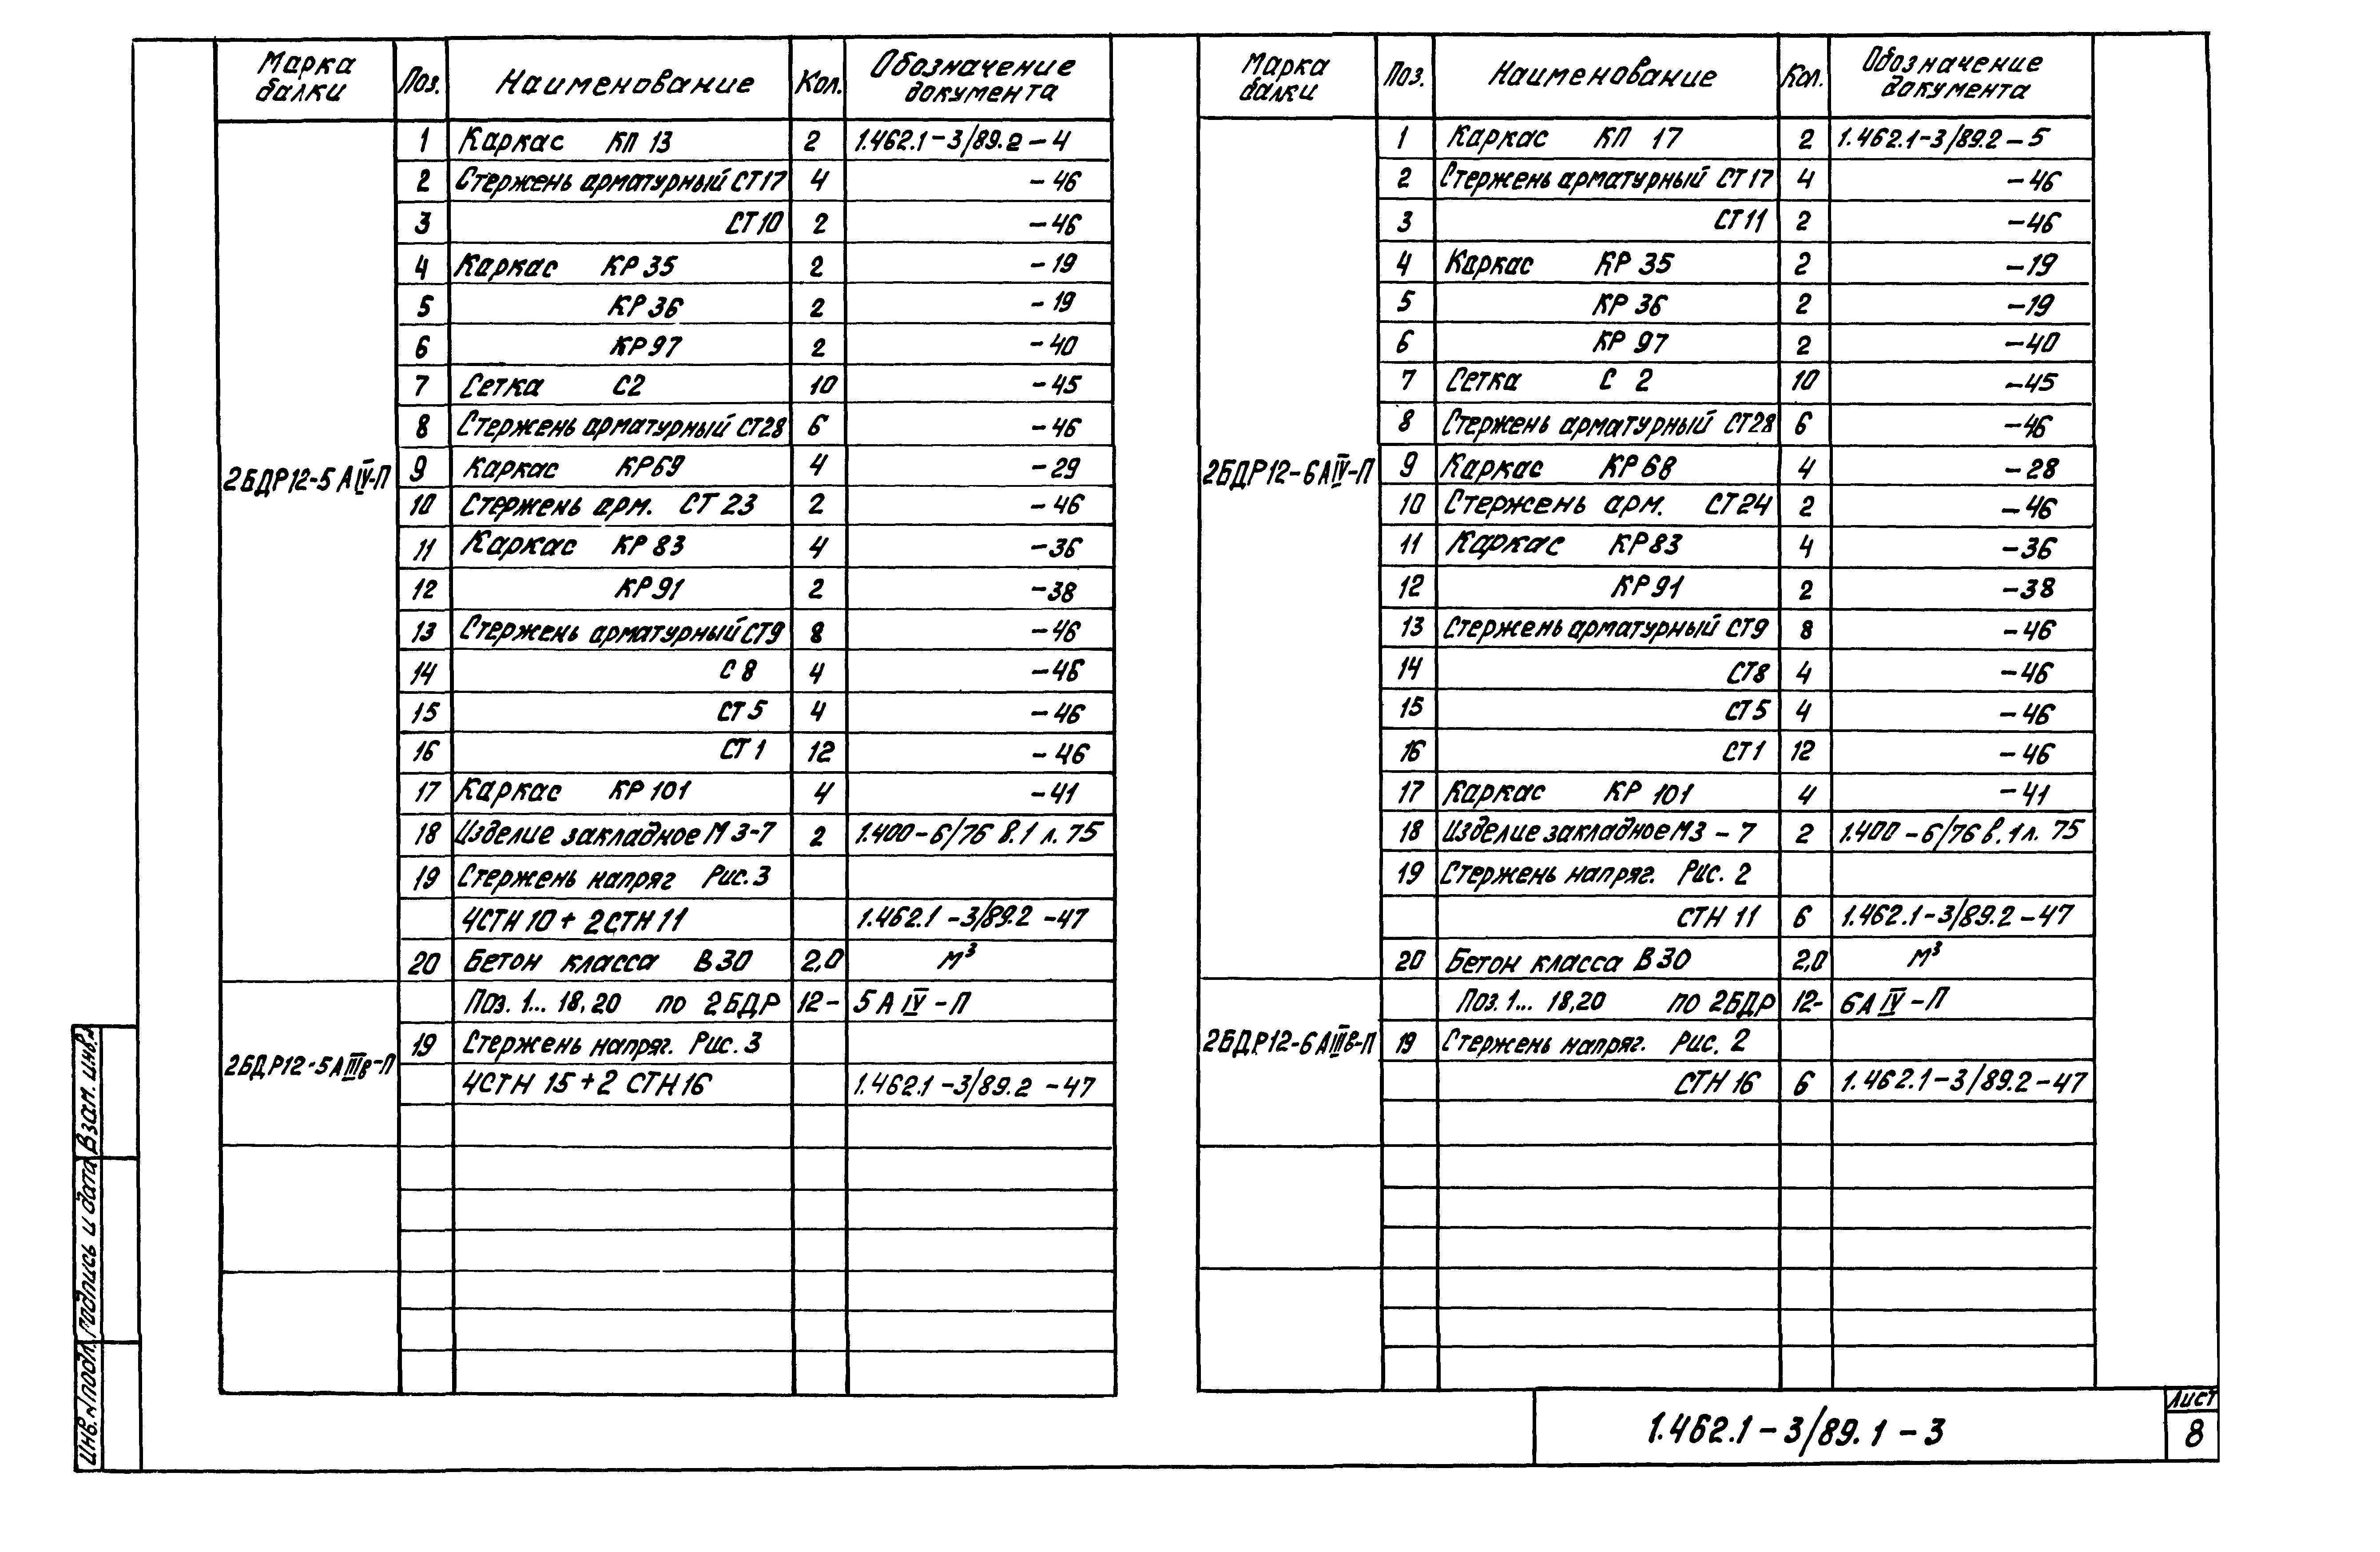 Марка балки Поз. Наименование Кол. Обозначение документа
1 Каркас КП 13 2 1.462.1-3/89.2-4
2 Стержень арматурный СТ17 4 -46
3 СТ10 2 -46
4 Каркас КР 35 2 -19
5 КР 36 2 -19
6 КР 97 2 -40
7 Сетка С2 10 -45
8 Стержень арматурный СТ28 6 -46
2БДР12-5 АIV-П 9 Каркас КР69 4 -29
10 Стержень арм. СТ 23 2 -46
11 Каркас КР 83 4 -36
12 КР 91 2 -38
13 Стержень арматурный СТ9 8 -46
14 С 8 4 -46
15 СТ 5 4 -46
16 СТ 1 12 -46
17 Каркас КР 101 4 -41
18 Изделие закладное М 3-7 2 1.400-6/76 В.1 л. 75
19 Стержень напряг Рис. 3
4СТН 10 + 2СТН 11 1.462.1-3/89.2-47
20 Бетон класса В30 2,0 м³
Поз. 1... 18,20 по 2БДР 12- 5 А IV - П
2БДР12-5АIIIв-П 19 Стержень напряг. Рис. 3
4СТН 15 + 2 СТН 16 1.462.1-3/89.2-47
Марка балки Поз. Наименование Кол. Обозначение документа
1 Каркас КП 17 2 1.462.1-3/89.2-5
2 Стержень арматурный СТ17 4 -46
3 СТ11 2 -46
4 Каркас КР 35 2 -19
5 КР 36 2 -19
6 КР 97 2 -40
7 Сетка С 2 10 -45
8 Стержень арматурный СТ28 6 -46
2БДР12-6АIV-П 9 Каркас КР 68 4 -28
10 Стержень арм. СТ24 2 -46
11 Каркас КР83 4 -36
12 КР91 2 -38
13 Стержень арматурный СТ9 8 -46
14 СТ8 4 -46
15 СТ5 4 -46
16 СТ1 12 -46
17 Каркас КР 101 4 -41
18 Изделие закладное М3-7 2 1.400-6/76 в.1 л. 75
19 Стержень напряг. Рис. 2
СТН 11 6 1.462.1-3/89.2-47
20 Бетон класса В30 2,0 м³
Поз. 1... 18,20 по 2БДР 12- 6А IV - П
2БДР12-6АIIIв-П 19 Стержень напряг. Рис. 2
СТН 16 6 1.462.1-3/89.2-47
Инв. № подл. Подпись и дата Взам. инв. №
1.462.1-3/89.1-3
Лист
8